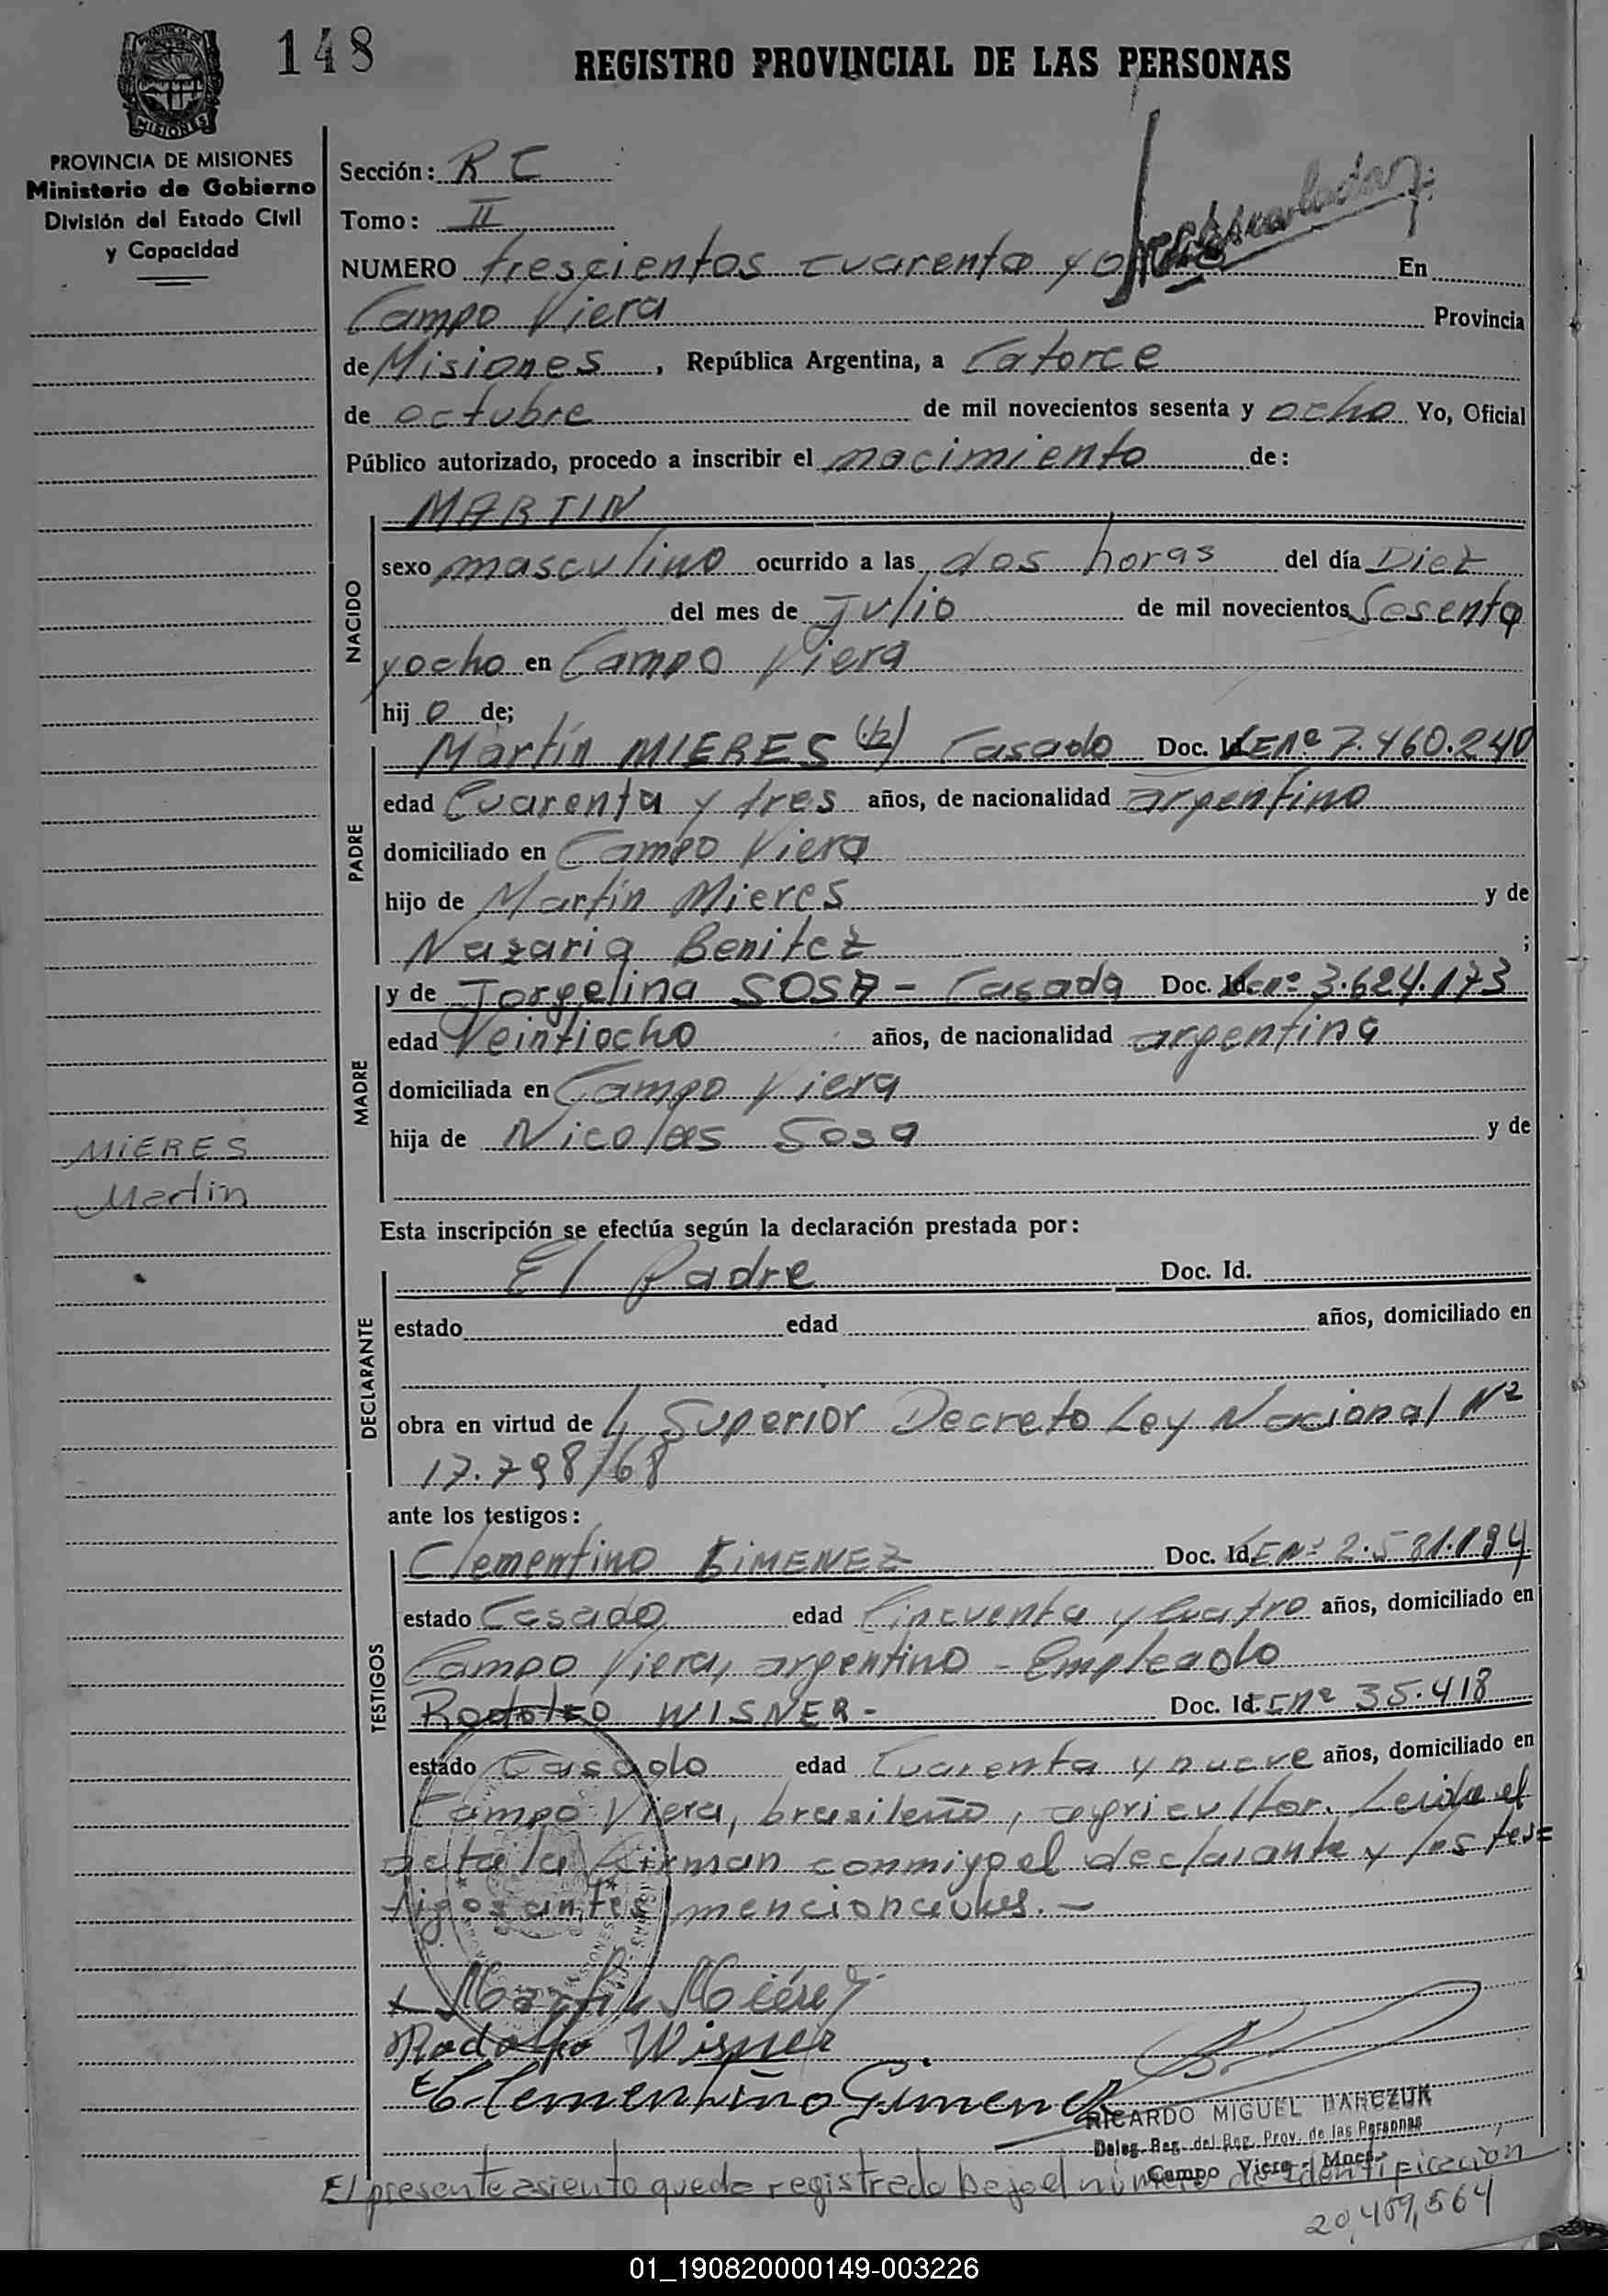 148
REGISTRO PROVINCIAL DE LAS PERSONAS
MISIONES
PROVINCIA DE MISIONES
Ministerio de Gobierno
División del Estado Civil
y Capacidad
Sección: R C
Tomo: II
NUMERO trescientos cuarenta y ocho En
Campo Viera Provincia
de Misiones, República Argentina, a Catorce
de octubre de mil novecientos sesenta y ocho Yo, Oficial
Público autorizado, procedo a inscribir el nacimiento de:
NACIDO
MARTIN
sexo masculino ocurrido a las dos horas del día Diez
del mes de Julio de mil novecientos Sesenta
y ocho en Campo Viera
hij o de;
PADRE
Martín MIERES (h) Casado Doc. Id. LE Nº 7.460.240
edad Cuarenta y tres años, de nacionalidad argentino
domiciliado en Campo Viera
hijo de Martín Mieres y de
Nazaria Benitez ;
MADRE
y de Jorgelina SOSA - Casada Doc. Id. nº 3.624.173
edad Veintiocho años, de nacionalidad argentina
domiciliada en Campo Viera
hija de Nicolas Sosa y de
MIERES
Martin
Esta inscripción se efectúa según la declaración prestada por:
DECLARANTE
El Padre Doc. Id.
estado edad años, domiciliado en
obra en virtud de Superior Decreto Ley Nacional Nº
17.798/68
ante los testigos:
TESTIGOS
Clementino GIMENEZ Doc. Id. LE Nº 2.581.184
estado Casado edad Cincuenta y Cuatro años, domiciliado en
Campo Viera, argentino - Empleado
Rodolfo WISNER - Doc. Id. nº 35.418
estado Casado edad Cuarenta y nueve años, domiciliado en
Campo Viera, brasileño, agricultor. Leida el
acta la firman conmigo el declarante y los tes=
tigos antes mencionados. -
Martin Miérez
Rodolfo Wisner
Clementino Gimenez
RICARDO MIGUEL HARCZUK
Deleg. Reg. del Reg. Prov. de las Personas
Campo Viera - Mnes.
El presente asiento queda registrado bajo el número de identificación
20,459,564
01_190820000149-003226